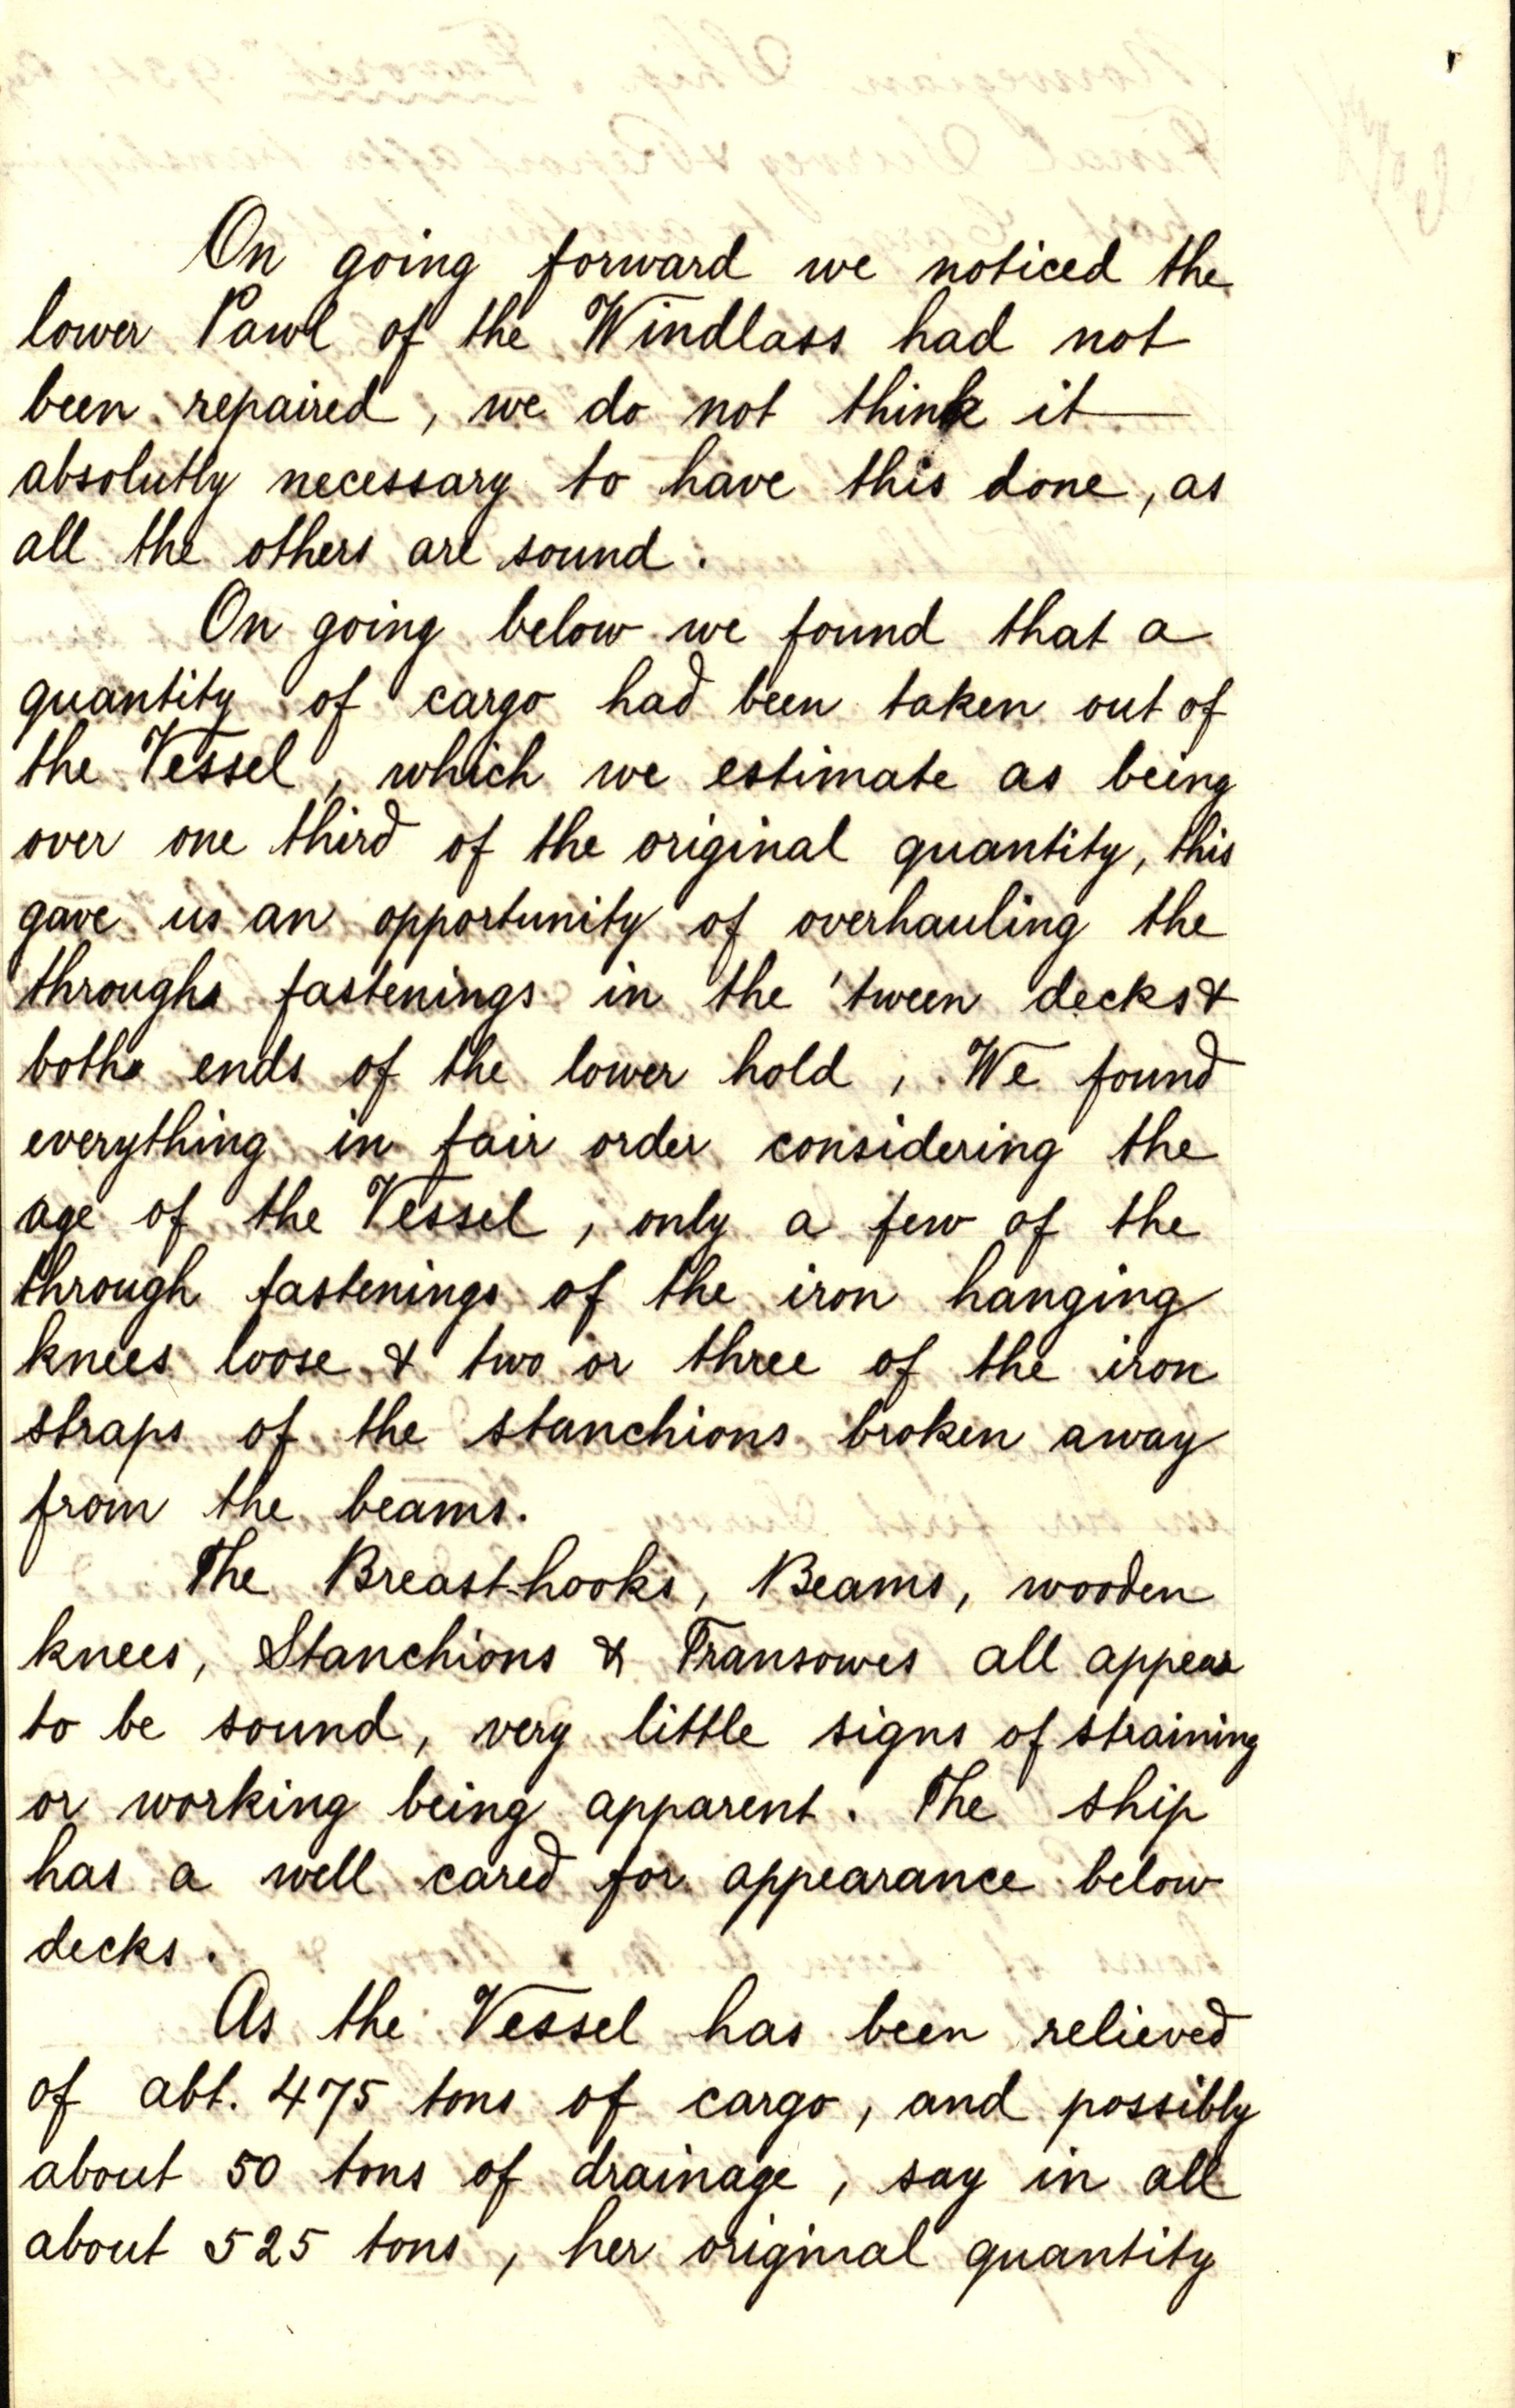 On going forward we noticed the
lower Pawl of the Windlass had not
been repaired, we do not think it
absolutly necessary to have this done, as
all the others are sound.
On going below we found that a
quantity of cargo had been taken out of
the Vessel, which we estimate as being
over one third of the original quantity, this
gave us an opportunity of overhauling the
through fastenings in the 'tween decks &
both ends of the lower hold, We found
everything in fair order considering the
age of the Vessel, only a few of the
through fastenings of the iron hanging
knees loose & two or three of the iron
straps of the stanchions broken away
from the beams.
The Breast-hooks, Beams, wooden
knees, Stanchions & Transowes all appear
to be sound, very little signs of straining
or working being apparent. The ship
has a well cared for appearance below
decks.
As the Vessel has been relieved
of abt. 475 tons of cargo, and possibly
about 50 tons of drainage, say in all
about 525 tons, her original quantity